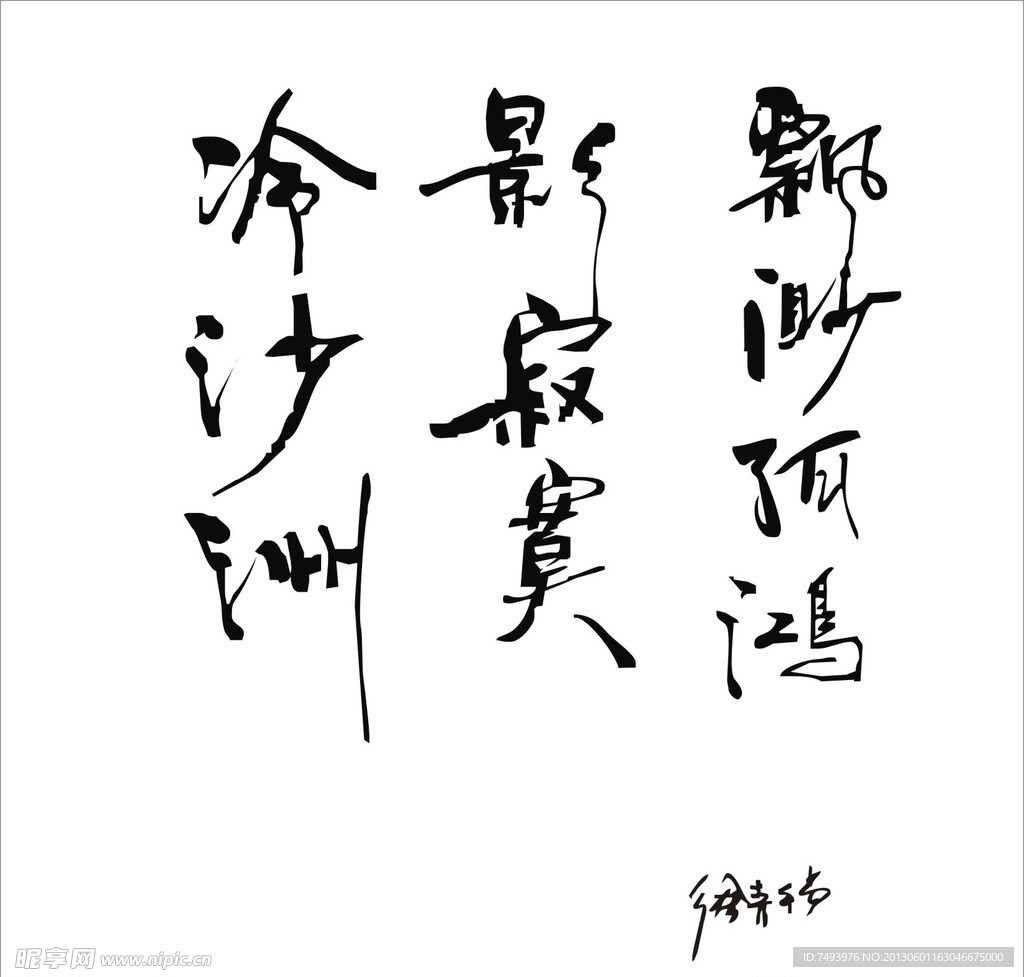 飘渺孤鸿
影寂寞
冷沙洲
昵享网 www.nipic.cn
ID:7493976 NO:20130601163046675000